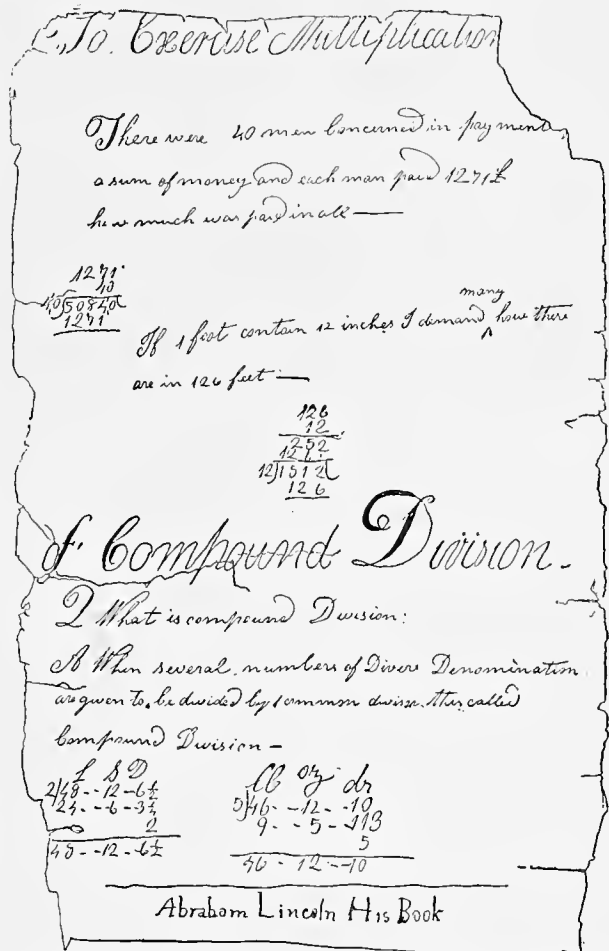 To Exercise Multiplication
There were 40 men Concerned in payment
a sum of money and each man paid 1271£
how much was paid in all —
1271
40
40)50840(
1271
If 1 foot contain 12 inches I demand how many there
are in 126 feet —
126
12
252
126
12)1512(
126
of Compound Division -
Q What is compound Division:
A When several numbers of Divers Denomination
are given to be divided by 1 common divisor this called
Compound Division -
£ S D
2)48--12-6½
24--6-3¼
2
48--12-6½
lb oz dr
5)46--12--10
9--5--113
5
46-12--10
Abraham Lincoln His Book